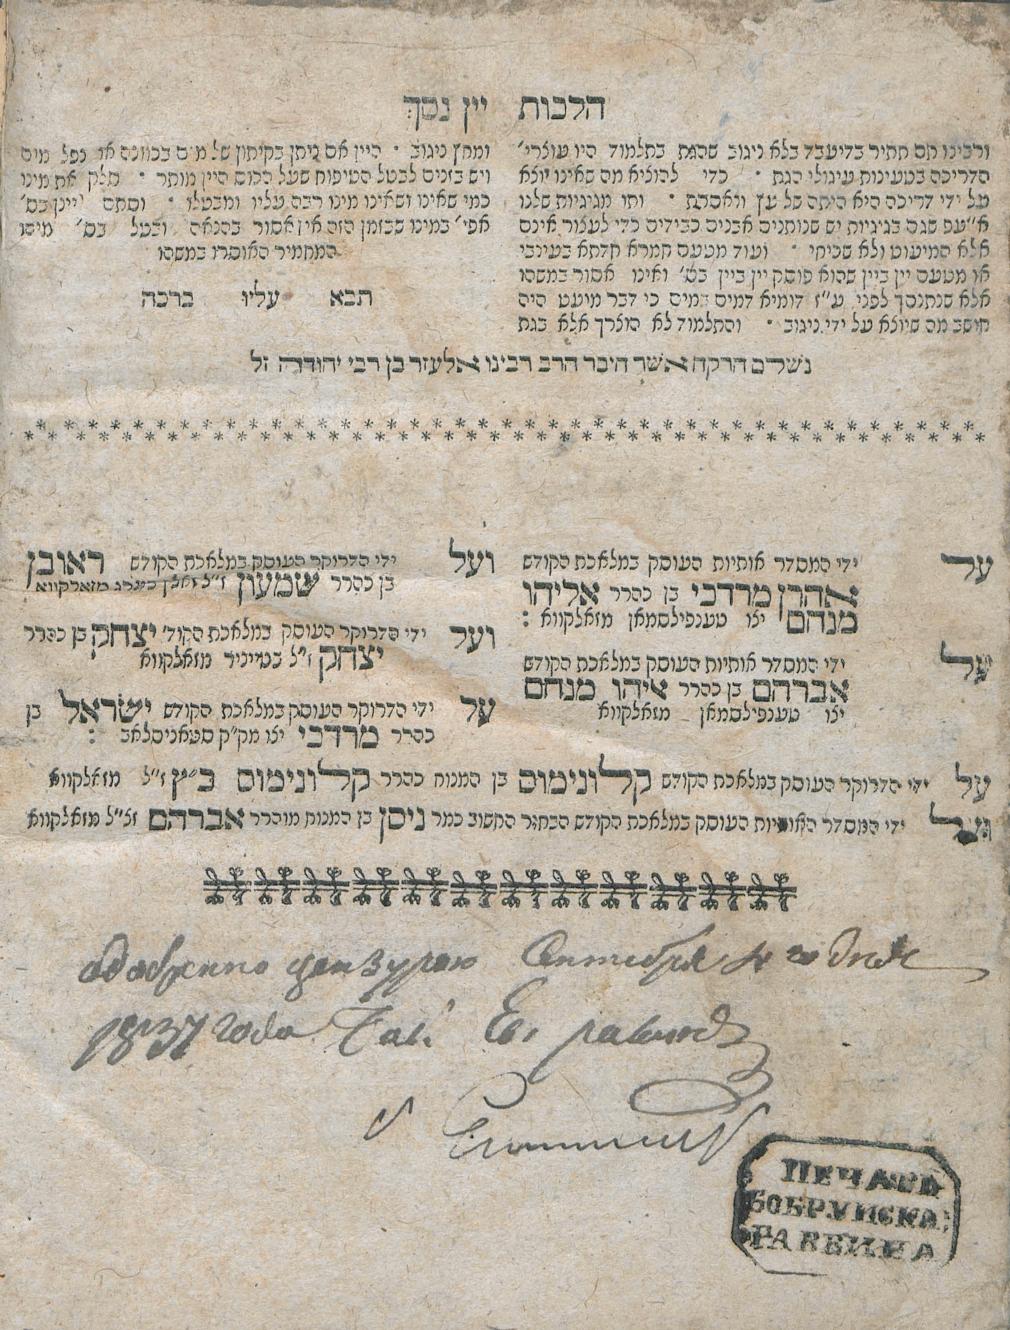 הלכות יין נסך
ורבינו תם התיר בדיעבד בלא ניגוב שהגת בתלמוד היו עוצרי׳
הדריכה בטעינות עיגולי הגת • כדי להוציא מה שאינו יוצא
על ידי דריכה היא היתה של עץ ונאסרת • וחו מגיגיות שלנו
א״עפ שגם בגיגיות יש שנותנים אבנים כבידים כדי לעצור אינם
אלא המיעוט ולא שכיחי • ועוד מטעם חמרא חדתא בעינבי
או מטעם יין ביין שהוא פוסק יין ביין בט׳ ואינו אסור במשהו
אלא שנתנסך לפני ע״ז דומיא דמים במים כי דבר מועט היה
חושב מה שיוצא על ידי ניגוב • והתלמוד לא הוצרך אלא בגת
ומחץ ניגוב • היין אם ניתן בקיתון של מים בכוונה או נפל מים
ויש בזנים לבטל הטיפות שעל הכוס היין מותר • חלק את מינו
כמי שאינו ושאינו מינו רבה עליו ומבטלו • וסתם יינן בס׳
אפי׳ במינו שבזמן הזה אין אסור בהנאה ובטל בס׳ מיהו
המחמיר האוסרו במשהו
תבא עליו ברכה
נשלם הרקח אשר חיבר הרב רבינו אלעזר בן רבי יהודה זל
על ידי המסדר אותיות העוסק במלאכת הקודש
אהרן מרדכי בן כהרר אליהו
מנחם יצו טענפילסמאן מזאלקווא :
על ידי המסדר אותיות העוסק במלאכת הקודש
אברהם בן כהרר איהו מנחם
יצו טענפילסמאן מזאלקווא
ועל ידי הדרוקר העוסק במלאכת הקודש ראובן
בן כהרר שמעון ז״ל מזאלקווא
ועל ידי הדרוקר העוסק במלאכת הקוד׳ יצחק בן כהרר
יצחק ז״ל מזאלקווא
על ידי הדרוקר העוסק במלאכת הקודש ישראל בן
כהרר מרדכי יצו מק״ק סטאניסלאב :
על ידי הדרוקר העוסק במלאכת הקודש קלונימוס בן המנוח כהרר קלונימוס כ״ץ ז״ל מזאלקווא
ועל ידי המסדר האותיות העוסק במלאכת הקודש הבחור החשוב כמר ניסן בן המנוח מוהרר אברהם זצ״ל מזאלקווא
одобрено цензурою Сентября 4го дня
1837 года
ПЕЧАТЬ
БОБРУЙСКА:
РАВВИНА